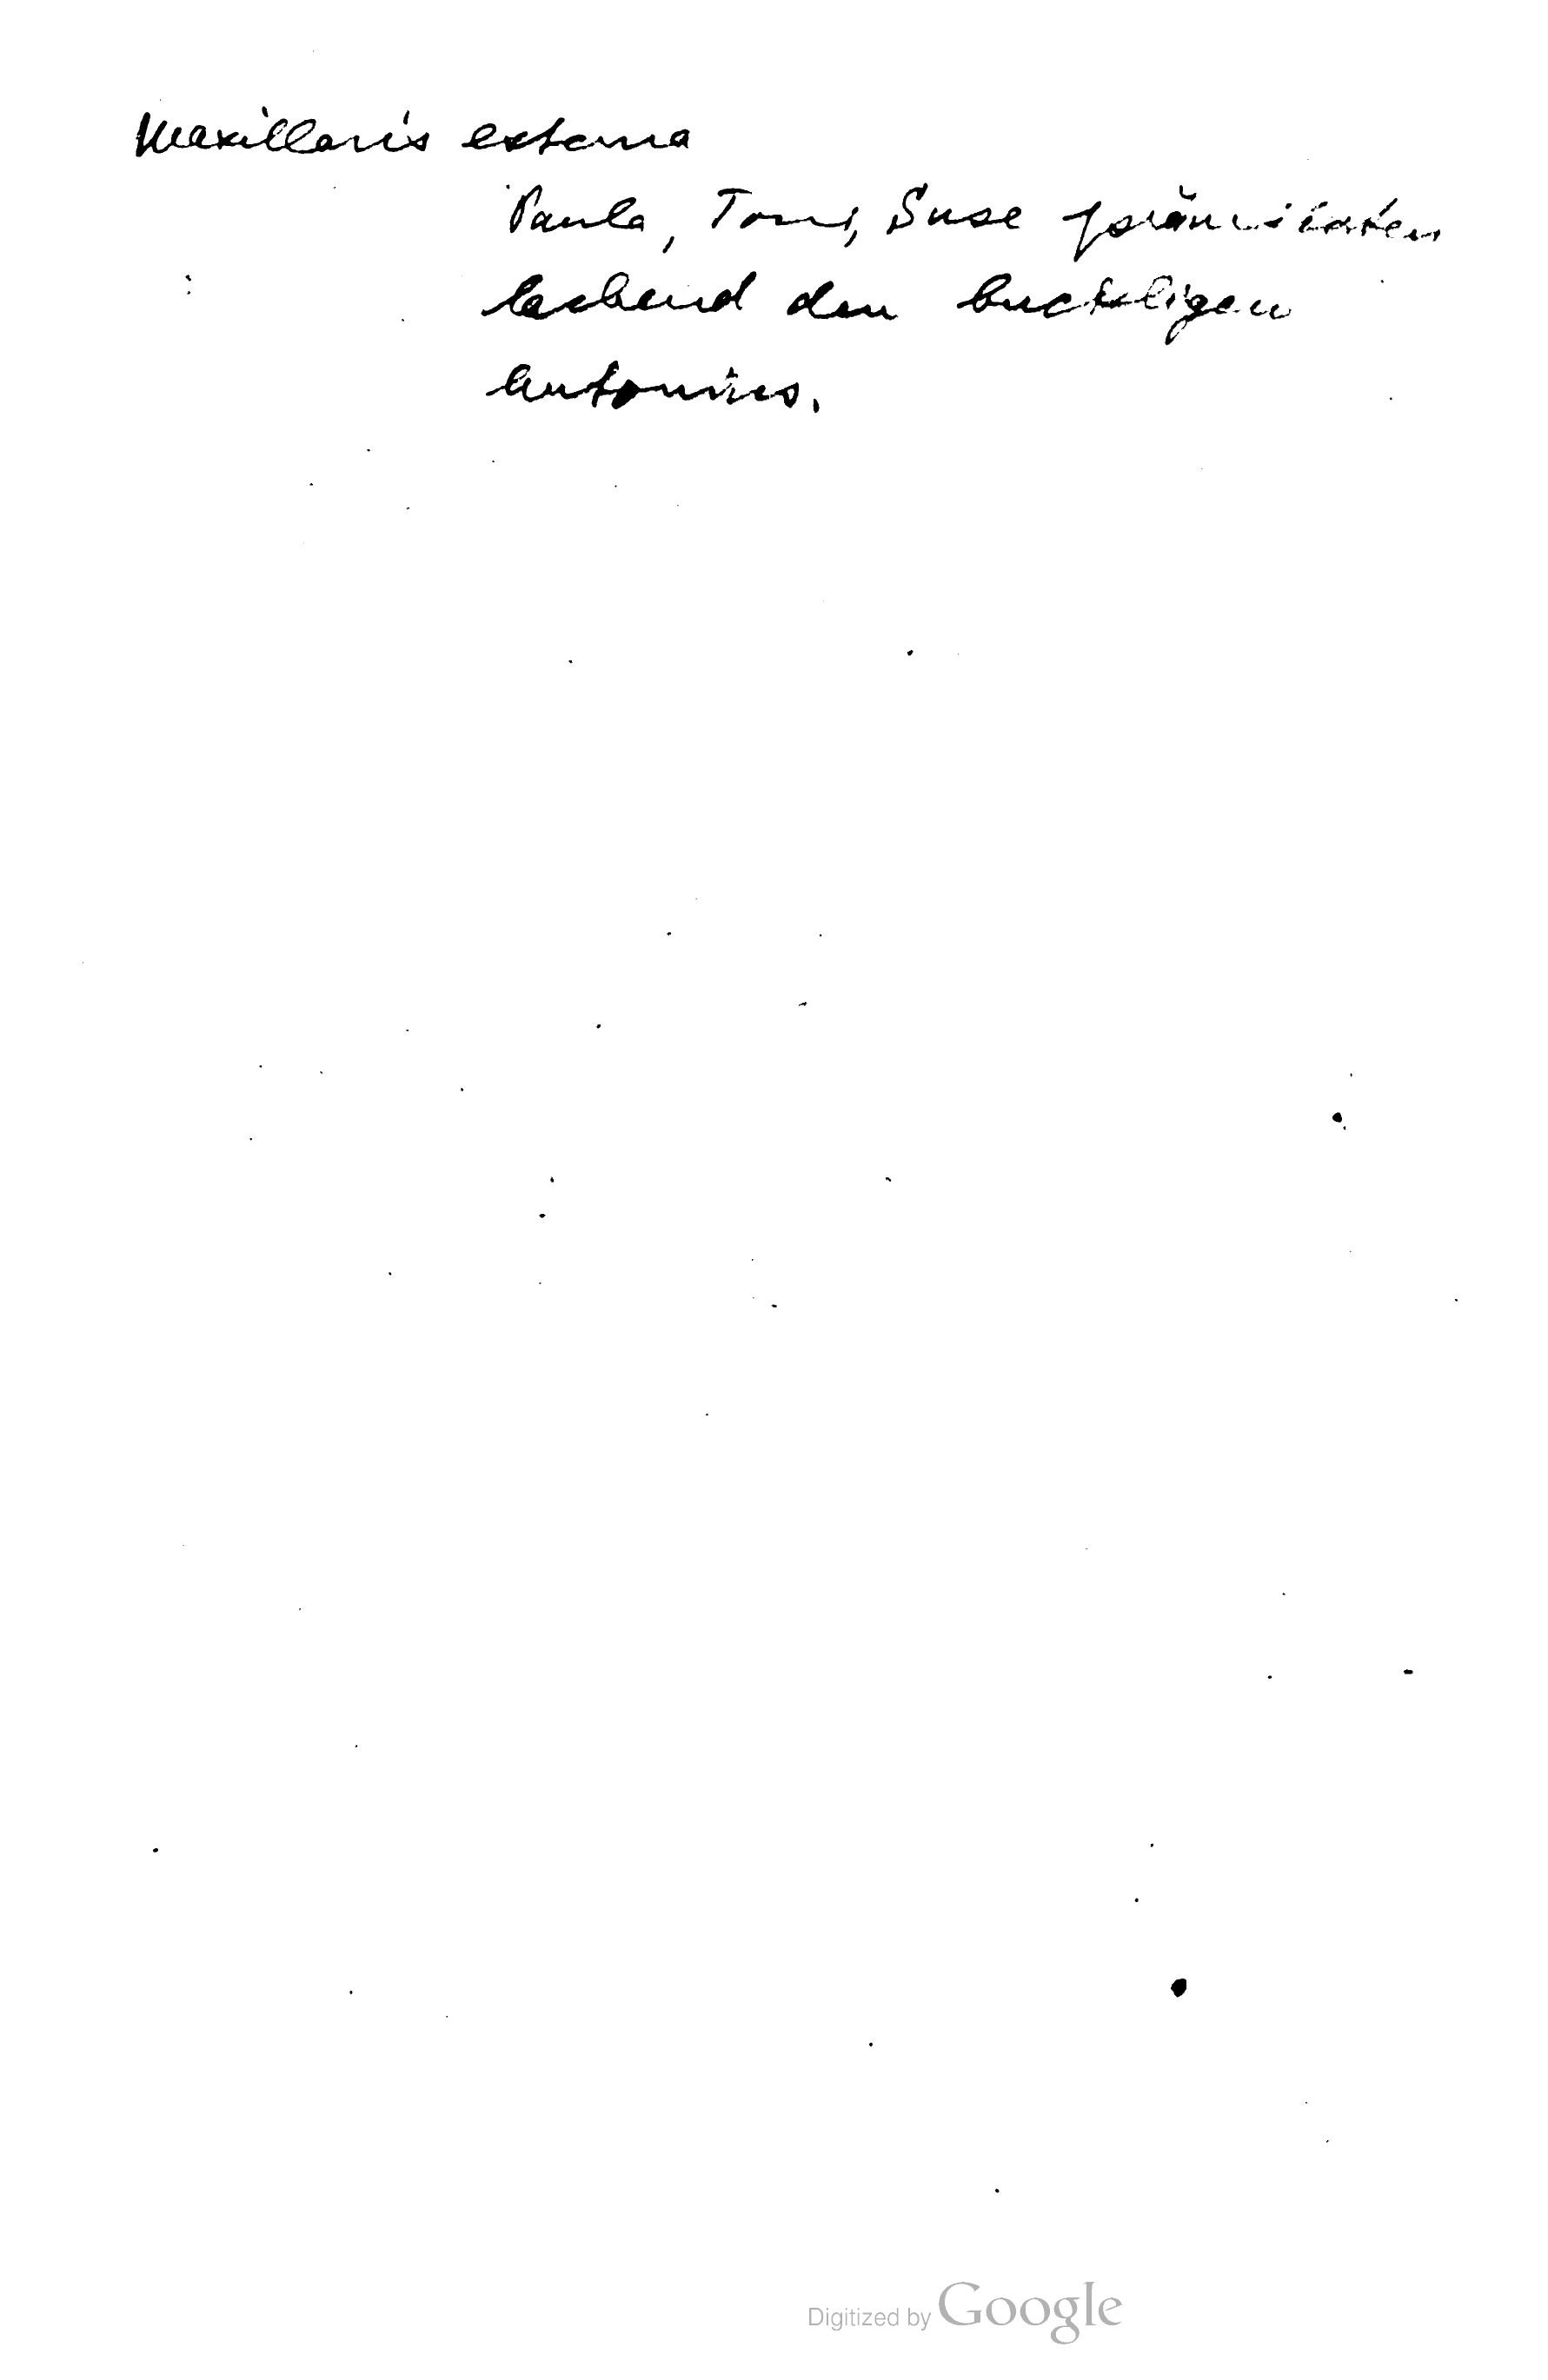 Maxillaris externa
Paula, Toni, Suse prämiierten
lachend den buckligen
Antonius.
Digitized by Google